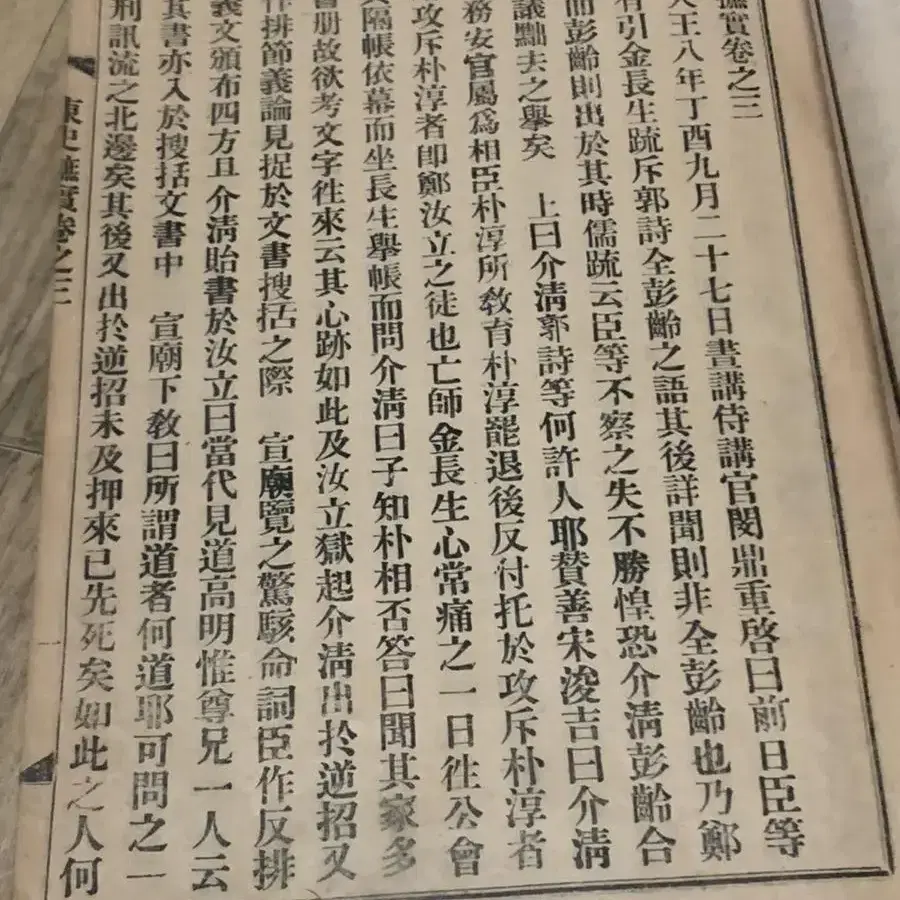 摭實卷之三
大王八年丁酉九月二十七日晝講侍講官閔鼎重啓曰前日臣等
有引金長生疏斥郭詩全彭齡之語其後詳聞則非全彭齡也乃鄭
而彭齡則出於其時儒疏云臣等不察之失不勝惶恐介淸彭齡合
議黜去之擧矣 上曰介淸郭詩等何許人耶贊善宋浚吉曰介淸
務安官屬爲相臣朴淳所敎育朴淳罷退後反付托於攻斥朴淳者
攻斥朴淳者卽鄭汝立之徒也亡師金長生心常痛之一日往公會
隔帳依幕而坐長生擧帳而問介淸曰子知朴相否答曰聞其家多
書册故欲考文字往來云其心跡如此及汝立獄起介淸出於逆招又
作排節義論見捉於文書搜括之際 宣廟覽之驚駭命詞臣作反排
義文頒布四方且介淸貽書於汝立曰當代見道高明惟尊兄一人云
其書亦入於搜括文書中 宣廟下敎曰所謂道者何道耶可問之一
刑訊流之北邊矣其後又出於逆招未及押來已先死矣如此之人何
東史摭實卷之三
一